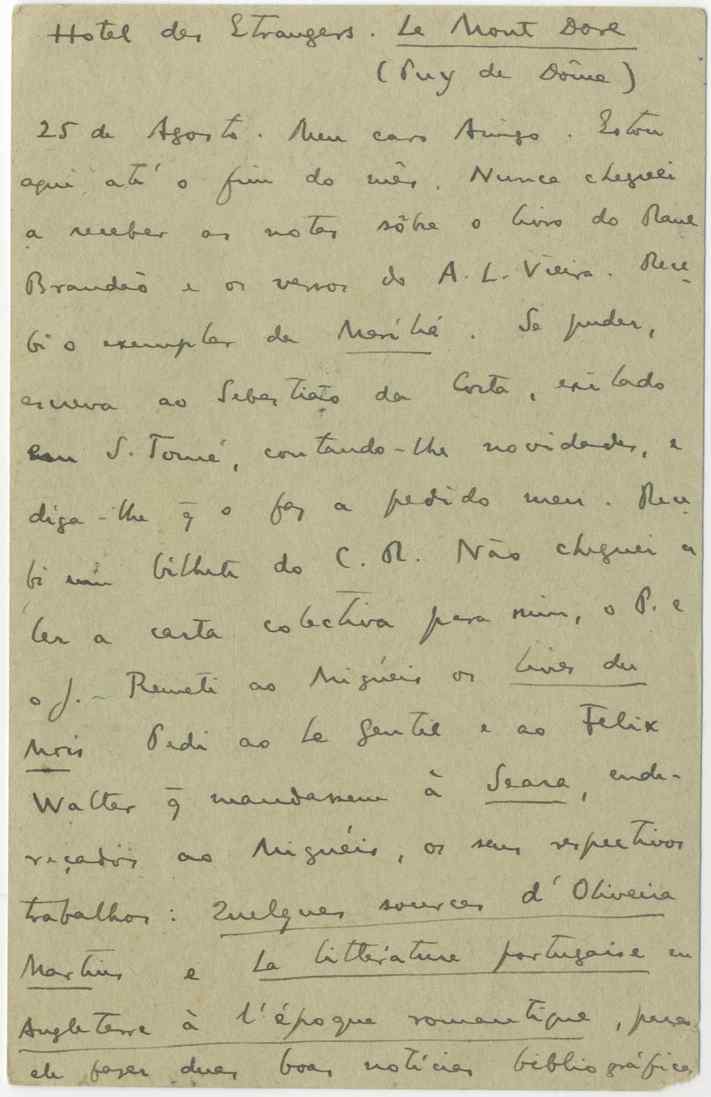 Hotel des Etrangers. Le Mont Dore
(Puy de Dôme)
25 de Agosto. Meu caro Amigo. Estou
aqui até o fim do mês. Nunca cheguei
a receber as notas sôbre o livro do Raul
Brandão e os versos do A. L. Vieira. Rece-
bi o exemplar da . Se puder,
escreva ao Sebastião da Costa, exilado
em S. Tomé, contando-lhe novidades, e
diga-lhe q̄ o faz a pedido meu. Rece-
bi um bilhete do C. R. Não cheguei a
ler a carta colectiva para mim, o P. e
o J. – Remeti ao Miguéis os Livres du
Mois Pedi ao Le Gentil e ao Felix
Walter q̄ mandassem à Seara, ende-
reçados ao Miguéis, os seus respectivos
trabalhos: Quelques sources d'Oliveira
Martins e La littérature portugaise en
Angleterre à l'époque romantique, para
ele fazer duas boas notícias bibliográficas